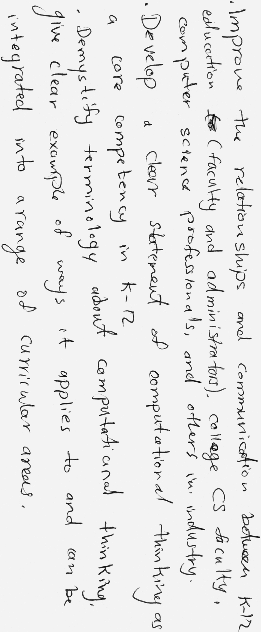 · Improve the relationships and communication between K-12
education (faculty and administrators), college CS faculty,
computer science professionals, and others in industry.
· Develop a clear statement of computational thinking as
a core competency in K-12
· Demystify terminology about computational thinking,
give clear example of ways it applies to and can be
integrated into a range of curricular areas.